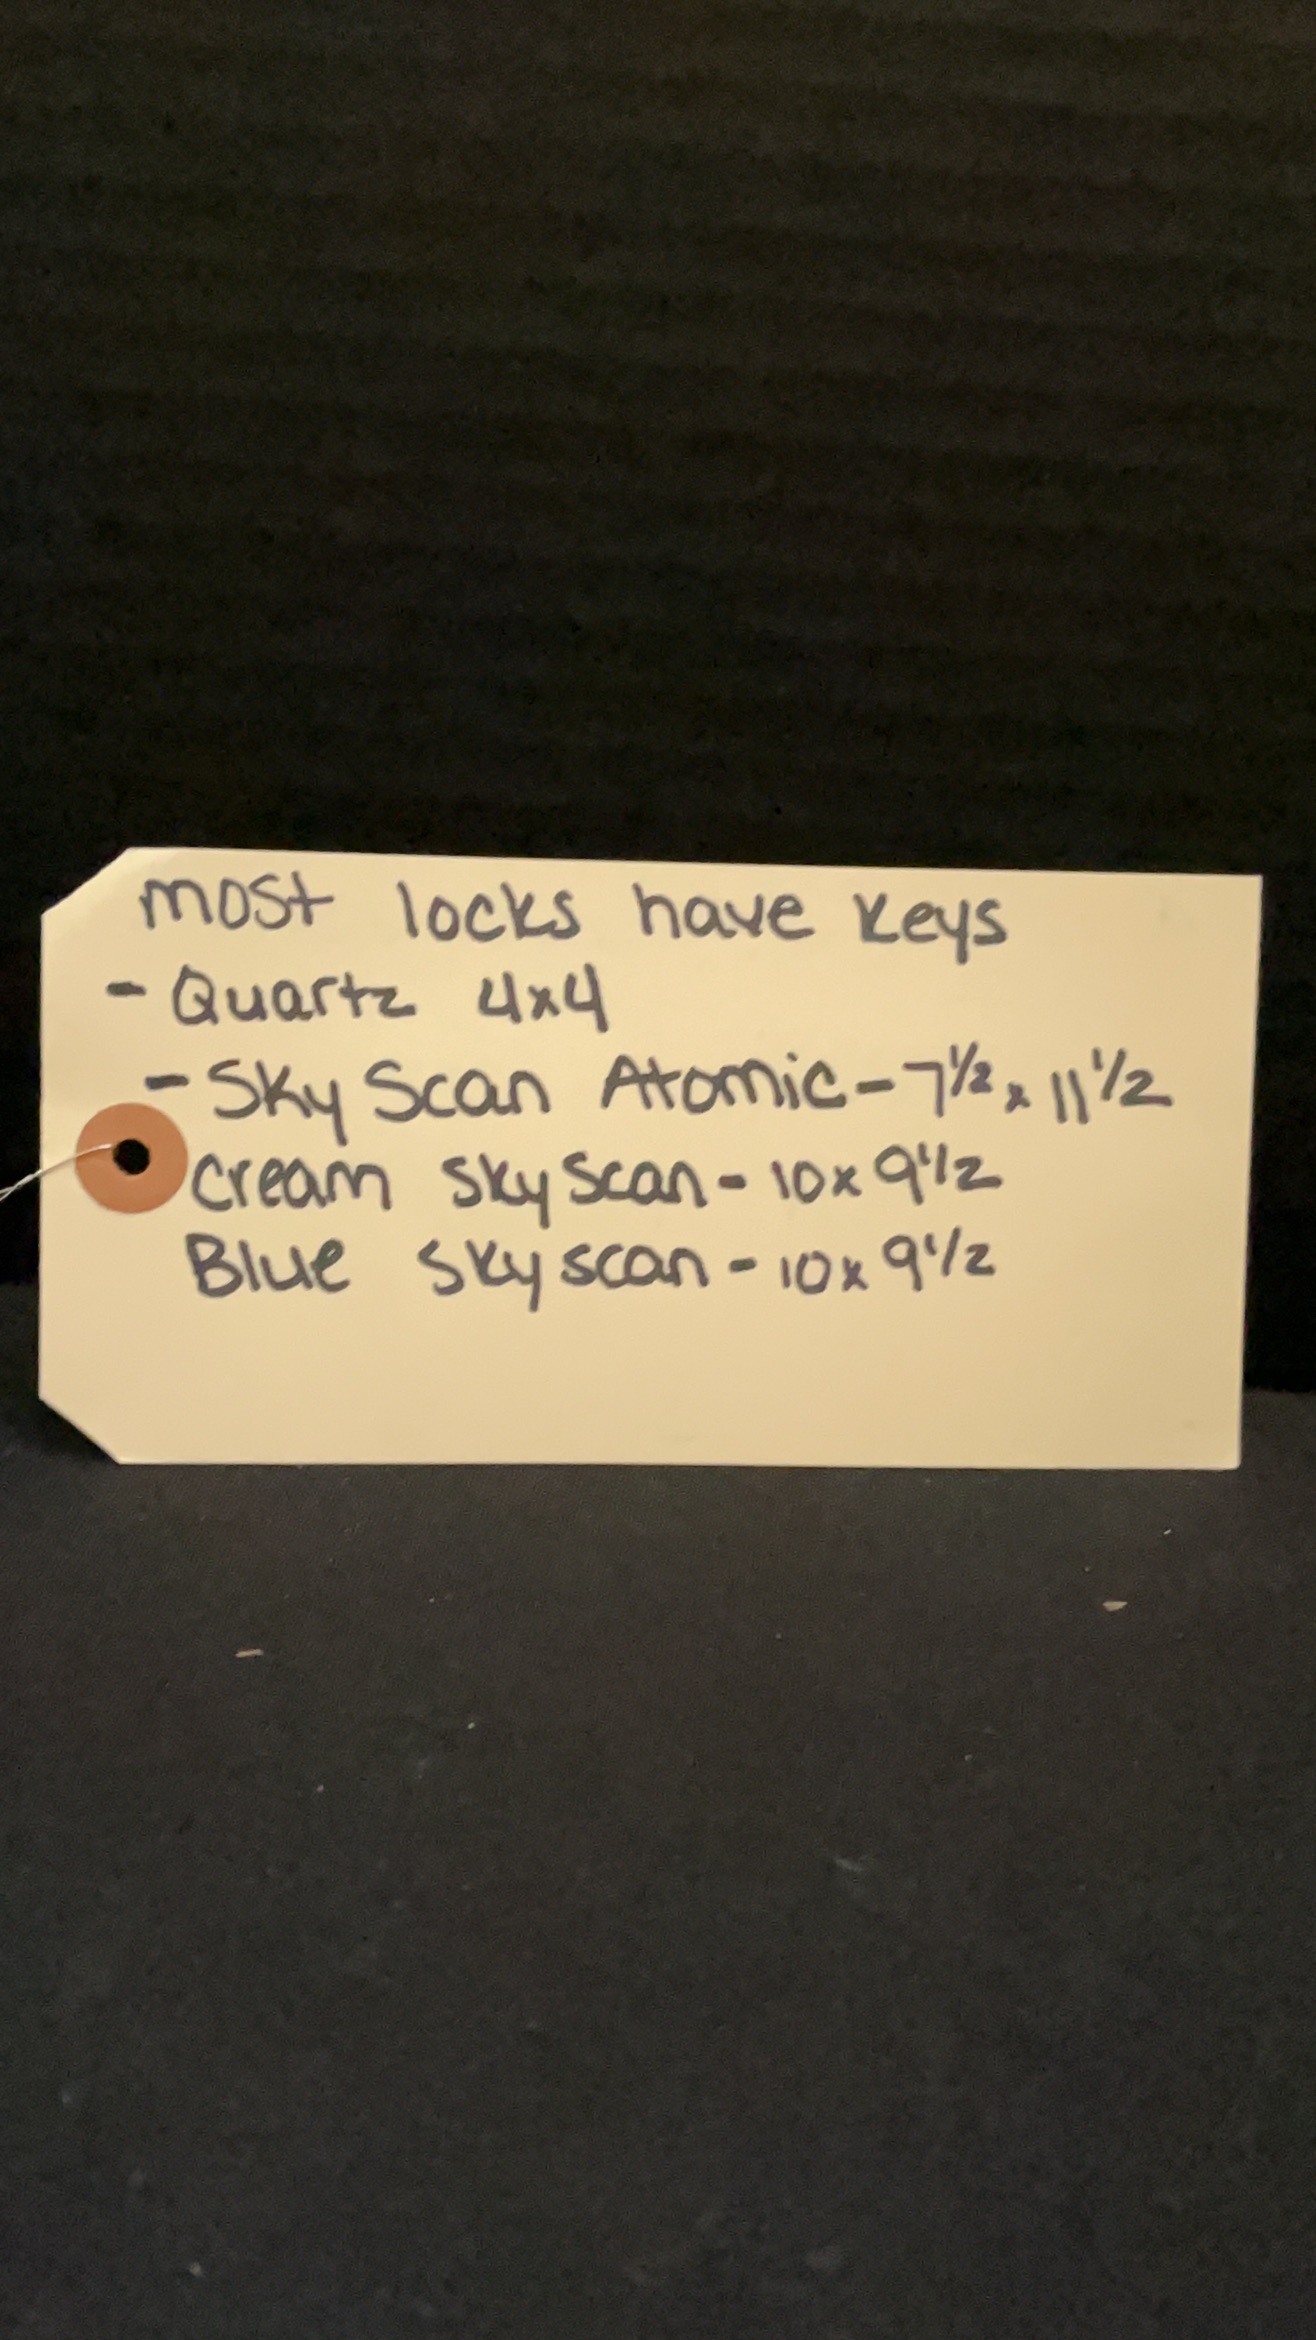 most locks have keys
- Quartz 4x4
- Sky Scan Atomic - 7 1/2 x 11 1/2
Cream Sky Scan - 10 x 9 1/2
Blue Sky scan - 10 x 9 1/2